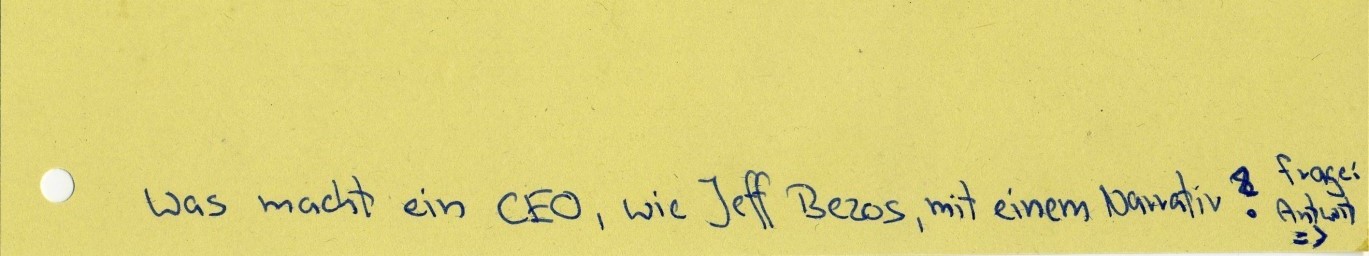 Was macht ein CEO, wie Jeff Bezos, mit einem Narrativ?
Frage:
Antwort
=>